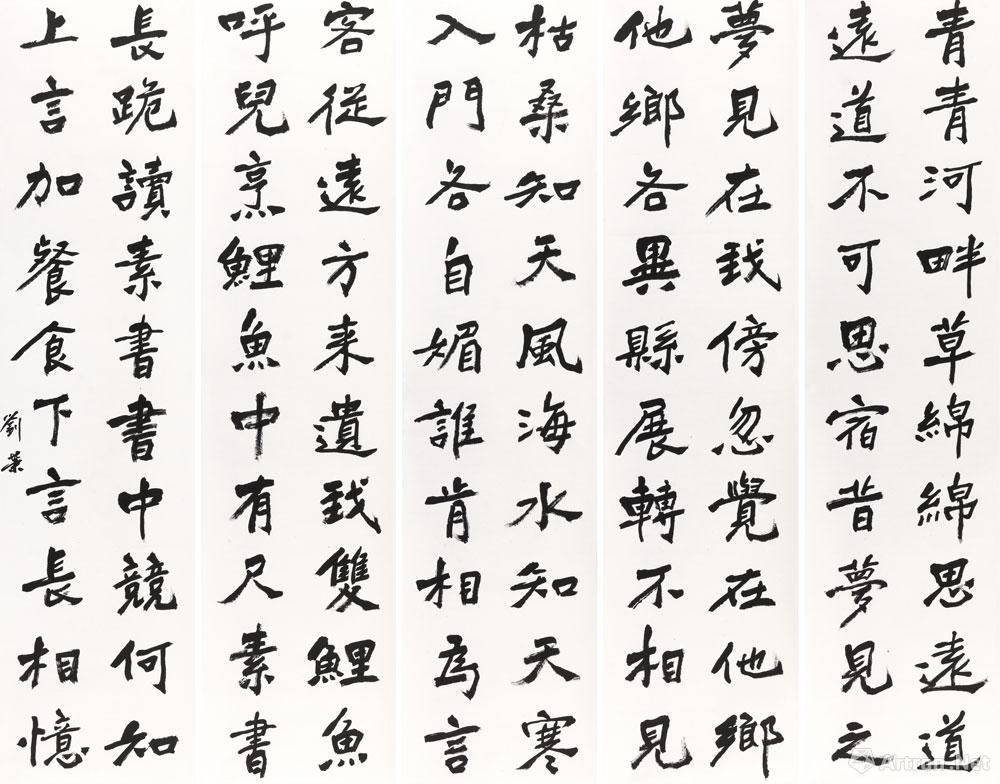 青青河畔草綿綿思遠道
遠道不可思宿昔夢見之
夢見在我傍忽覺在他鄉
他鄉各異縣展轉不相見
枯桑知天風海水知天寒
入門各自媚誰肯相為言
客從遠方来遺我雙鯉魚
呼兒烹鯉魚中有尺素書
長跪讀素書書中競何知
上言加餐食下言長相憶
劉
Artron.Net